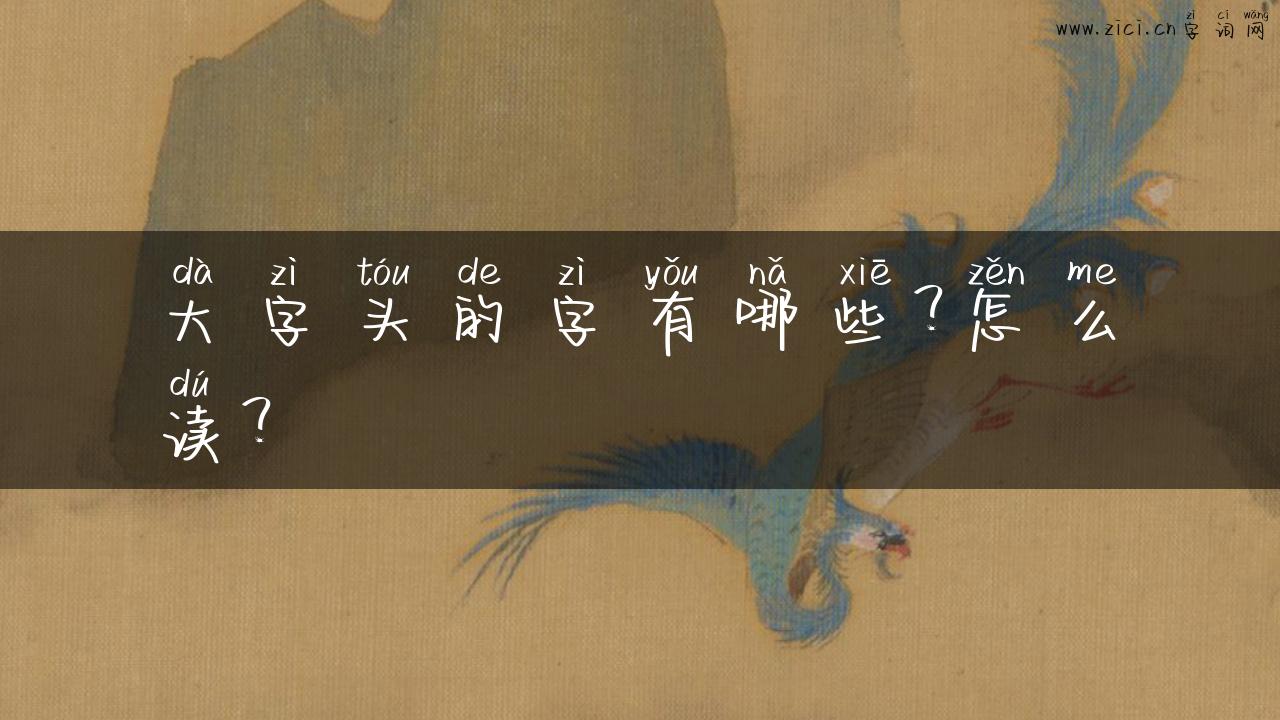 zì cí wǎng
www.zici.cn字词网
dà zì tóu de zì yǒu nǎ xiē zěn me
大字头的字有哪些?怎么
dú
读?